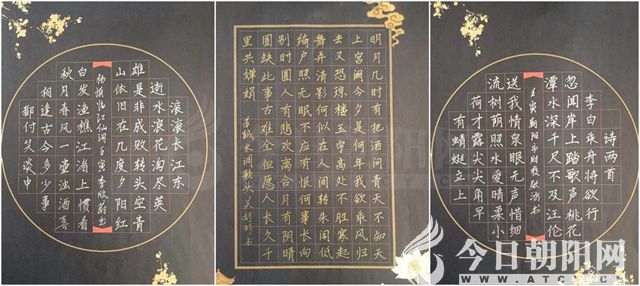 滚滚长江东
逝水浪花淘尽英
雄是非成败转头空青
山依旧在几度夕阳红
杨慎临江仙词壬寅李欣蔚书
白发渔樵江渚上惯看
秋月春风一壶浊酒喜
相逢古今多少事
都付笑谈中
明月几时有把酒问青天不知天
上宫阙今夕是何年我欲乘风归
去又恐琼楼玉宇高处不胜寒起
舞弄清影何似在人间转朱阁低
绮户照无眠不应有恨何事长向
别时圆人有悲欢离合月有阴晴
圆缺此事古难全但愿人长久千
里共婵娟 苏轼水调歌头
诗两首
李白乘舟将欲行
忽闻岸上踏歌声桃花
潭水深千尺不及汪伦
壬寅朝阳市财校
送我情泉眼无声惜细
流树荫照水爱晴柔小
荷才露尖尖角早
有蜻蜓立上
今日朝阳网